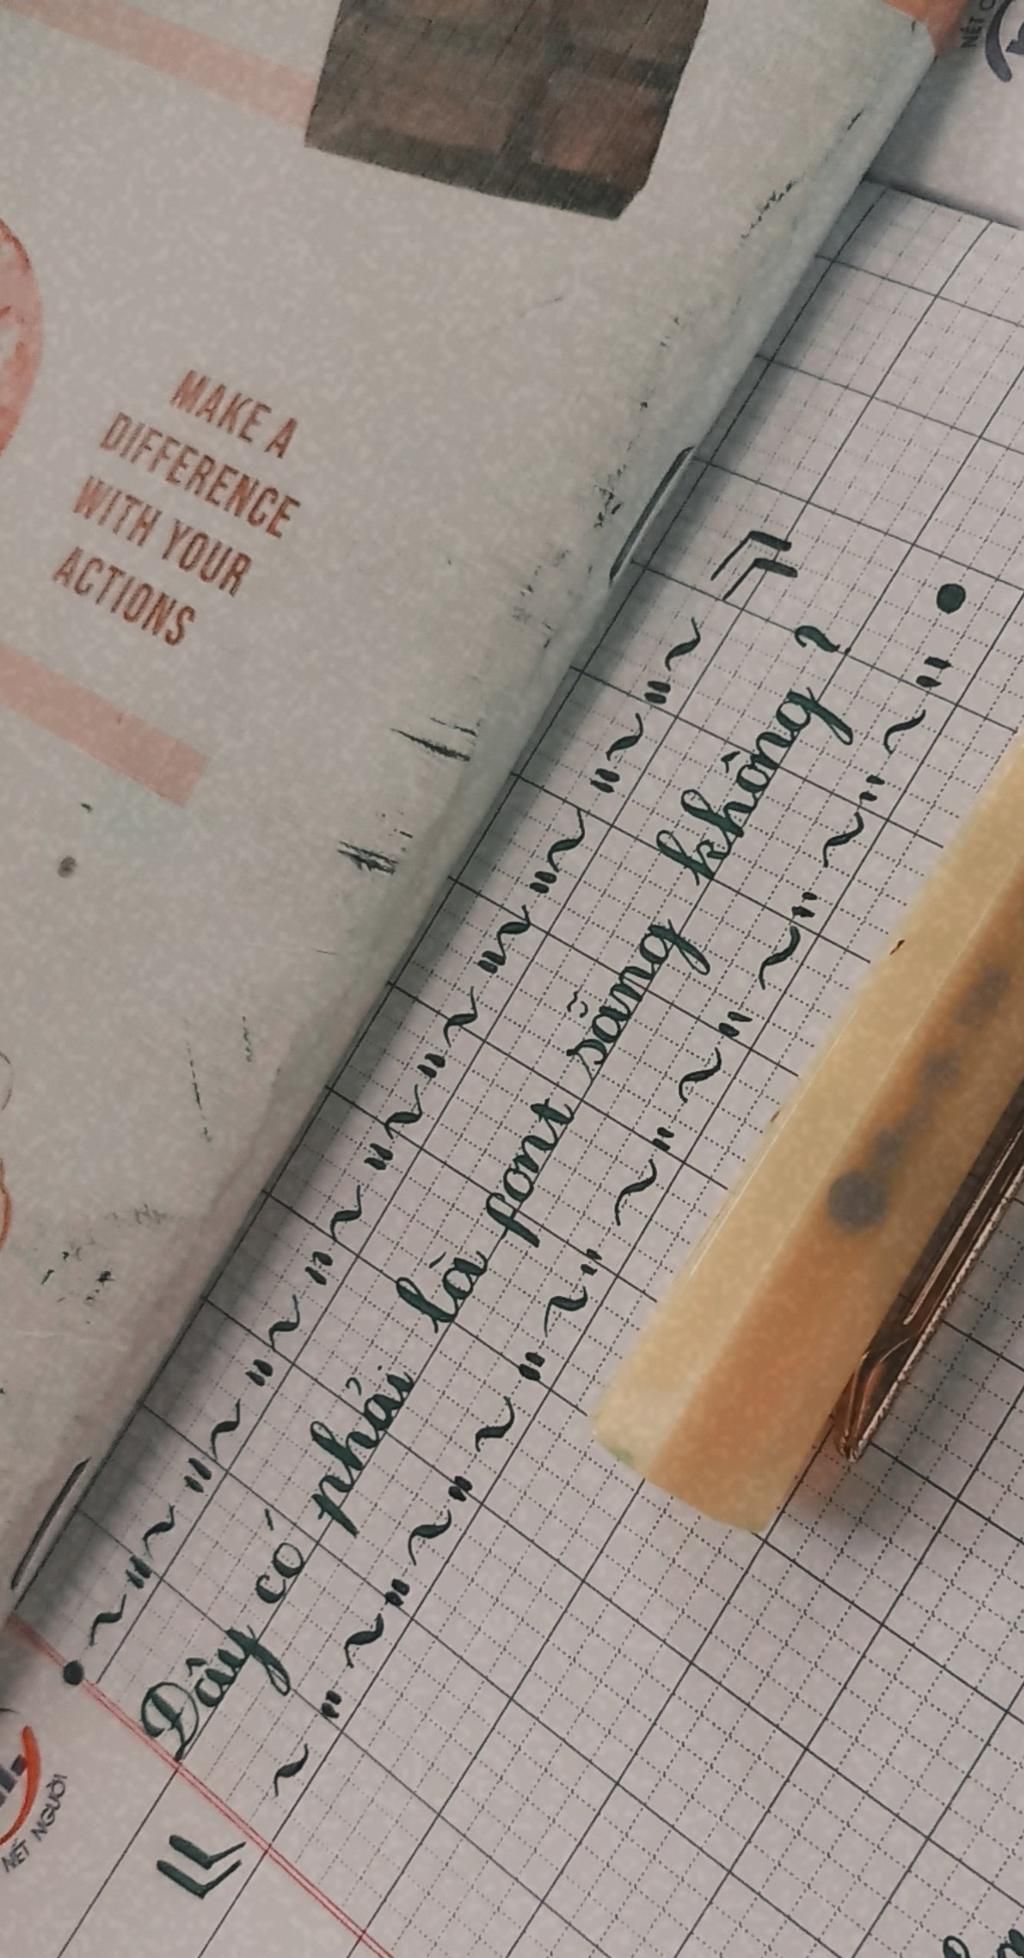 MAKE A
DIFFERENCE
WITH YOUR
ACTIONS
Đây có phải là font sãng không ?
NÉT NGƯỜI
NÉT C